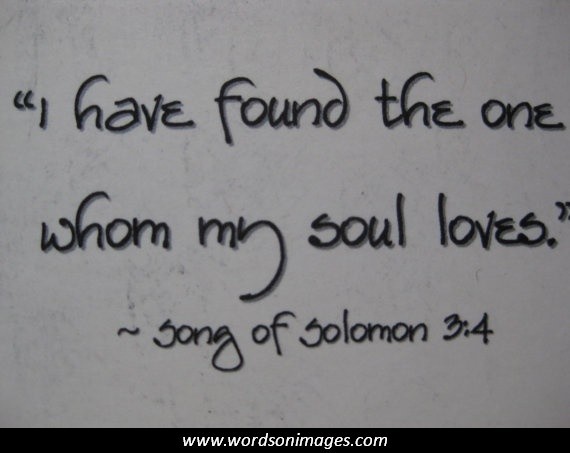 “I have found the one
whom my soul loves.”
~ song of solomon 3:4
www.wordsonimages.com